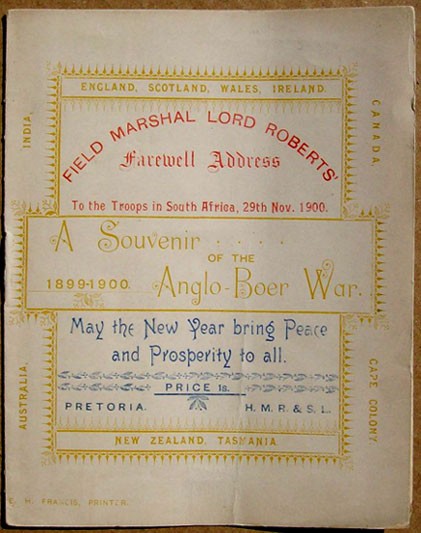 ENGLAND, SCOTLAND, WALES, IRELAND.
INDIA.
CANADA.
FIELD MARSHAL LORD ROBERTS'
Farewell Address
To the Troops in South Africa, 29th Nov. 1900.
A Souvenir . . . . .
OF THE
1899-1900. Anglo-Boer War.
May the New Year bring Peace
and Prosperity to all.
PRICE 1s.
PRETORIA. H. M. R. & S. L.
AUSTRALIA.
CAPE COLONY
NEW ZEALAND, TASMANIA.
H. FRANCIS, PRINTER.